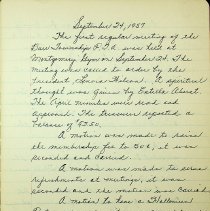 September 24, 1957
The first regular meeting of the
Darr Township P.T.A. was held at
Montgomery Gym on September 24. The
meeting was called to order by the
President, Thelson. A spiritual
thought was given by Estella Abert.
The April minutes were read and
approved. The Treasurer reported a
balance of $5.50.
A motion was made to raise
the membership fee to 50¢, it was
seconded and carried.
A motion was made to serve
refreshments at meetings, it was
seconded and the motion was carried
A motion to have a Halloween